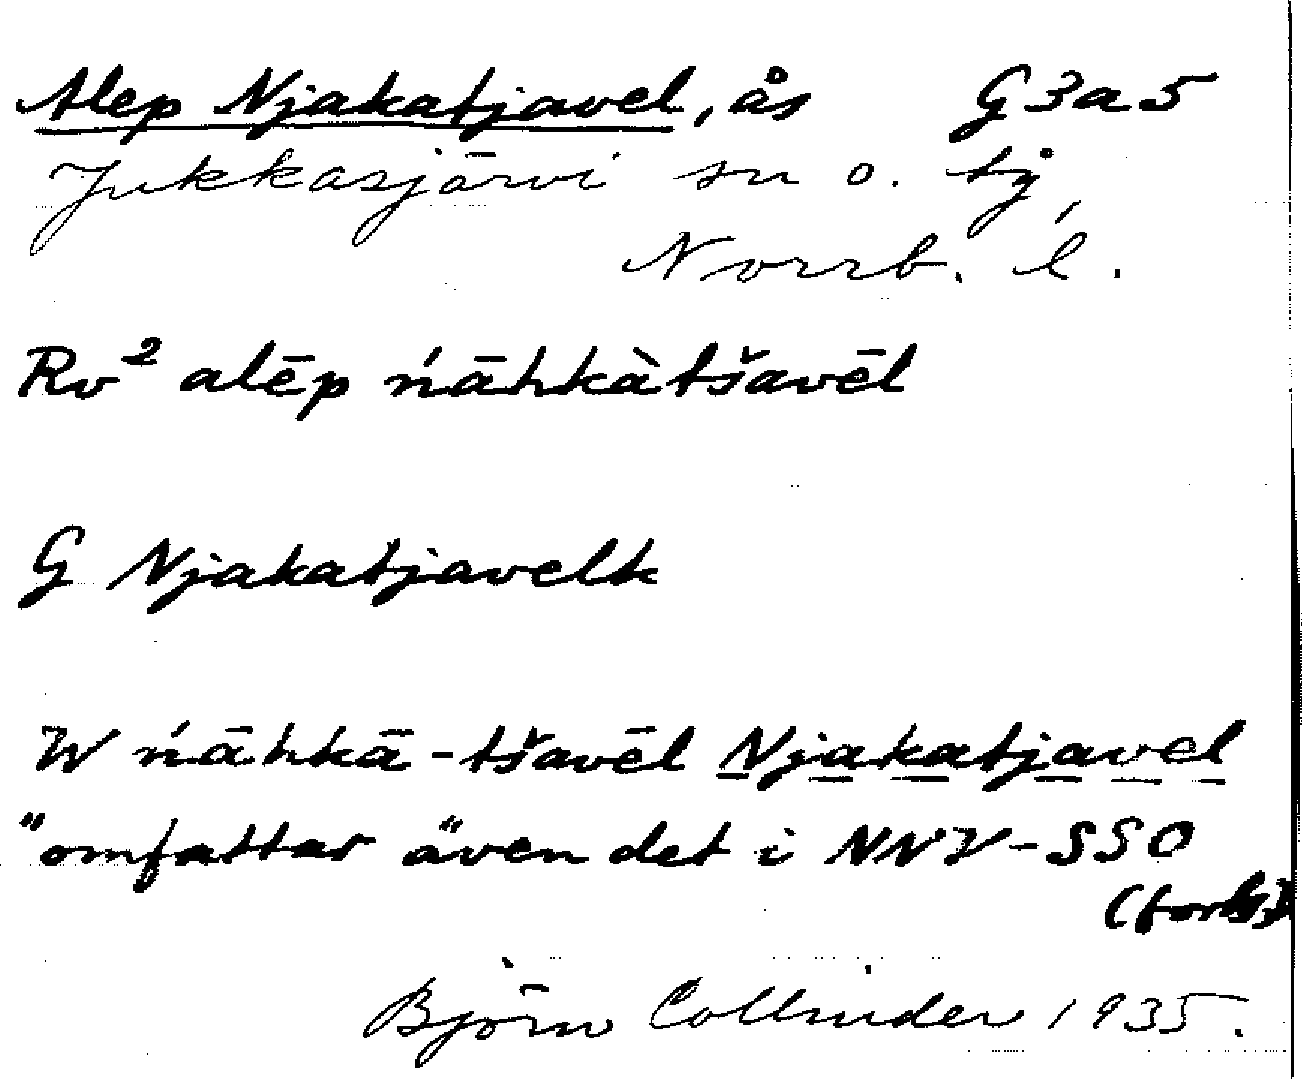 Alep Njakatjavel, ås G3a5
Jukkasjärvi sn o. tg
Norrb. l.
Rv² alēp ńāhkàtšavēl
G Njakatjavelk
W ńāhkā-tšavēl Njakatjavel
"omfattar även det i NNV-SSO
(forts)
Björn Collinder 1935.